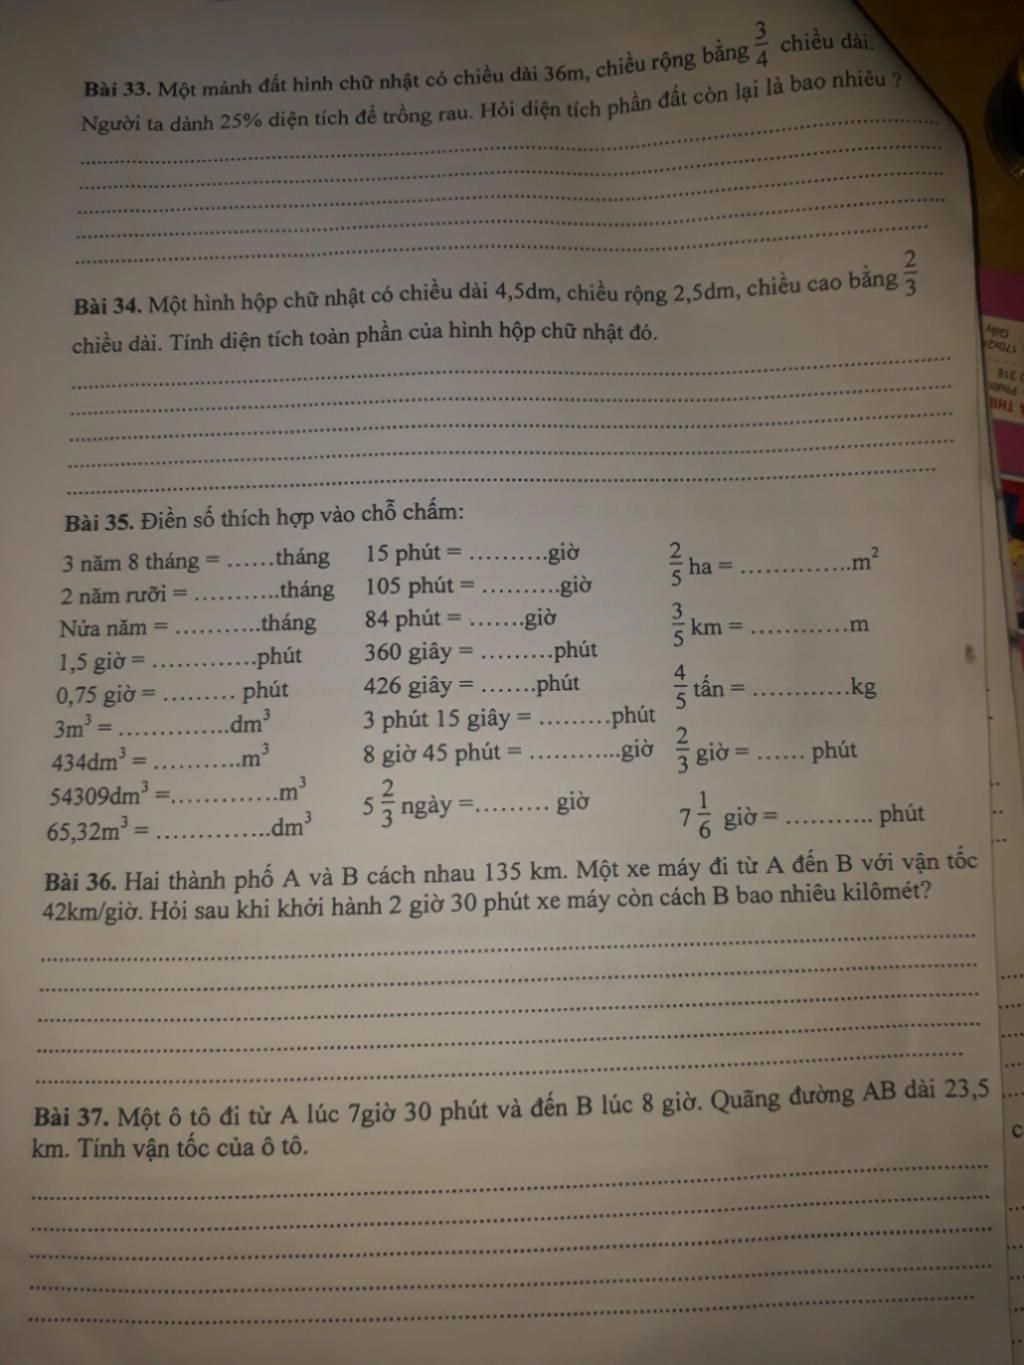 Bài 33. Một mảnh đất hình chữ nhật có chiều dài 36m, chiều rộng bằng 3/4 chiều dài.
Người ta dành 25% diện tích để trồng rau. Hỏi diện tích phần đất còn lại là bao nhiêu ?
Bài 34. Một hình hộp chữ nhật có chiều dài 4,5dm, chiều rộng 2,5dm, chiều cao bằng 2/3
chiều dài. Tính diện tích toàn phần của hình hộp chữ nhật đó.
Bài 35. Điền số thích hợp vào chỗ chấm:
3 năm 8 tháng = ......tháng 15 phút = ..........giờ 2/5 ha = ..............m²
2 năm rưỡi = ...........tháng 105 phút = ..........giờ
Nửa năm = ...........tháng 84 phút = .......giờ 3/5 km = ............m
1,5 giờ = .............phút 360 giây = .........phút
0,75 giờ = ......... phút 426 giây = .......phút 4/5 tấn = ............kg
3m³ = ..............dm³ 3 phút 15 giây = .........phút
434dm³ = ...........m³ 8 giờ 45 phút = ............giờ 2/3 giờ = ...... phút
54309dm³ =.............m³ 5 2/3 ngày =......... giờ 7 1/6 giờ = ........... phút
65,32m³ = ..............dm³
Bài 36. Hai thành phố A và B cách nhau 135 km. Một xe máy đi từ A đến B với vận tốc
42km/giờ. Hỏi sau khi khởi hành 2 giờ 30 phút xe máy còn cách B bao nhiêu kilômét?
Bài 37. Một ô tô đi từ A lúc 7giờ 30 phút và đến B lúc 8 giờ. Quãng đường AB dài 23,5
km. Tính vận tốc của ô tô.